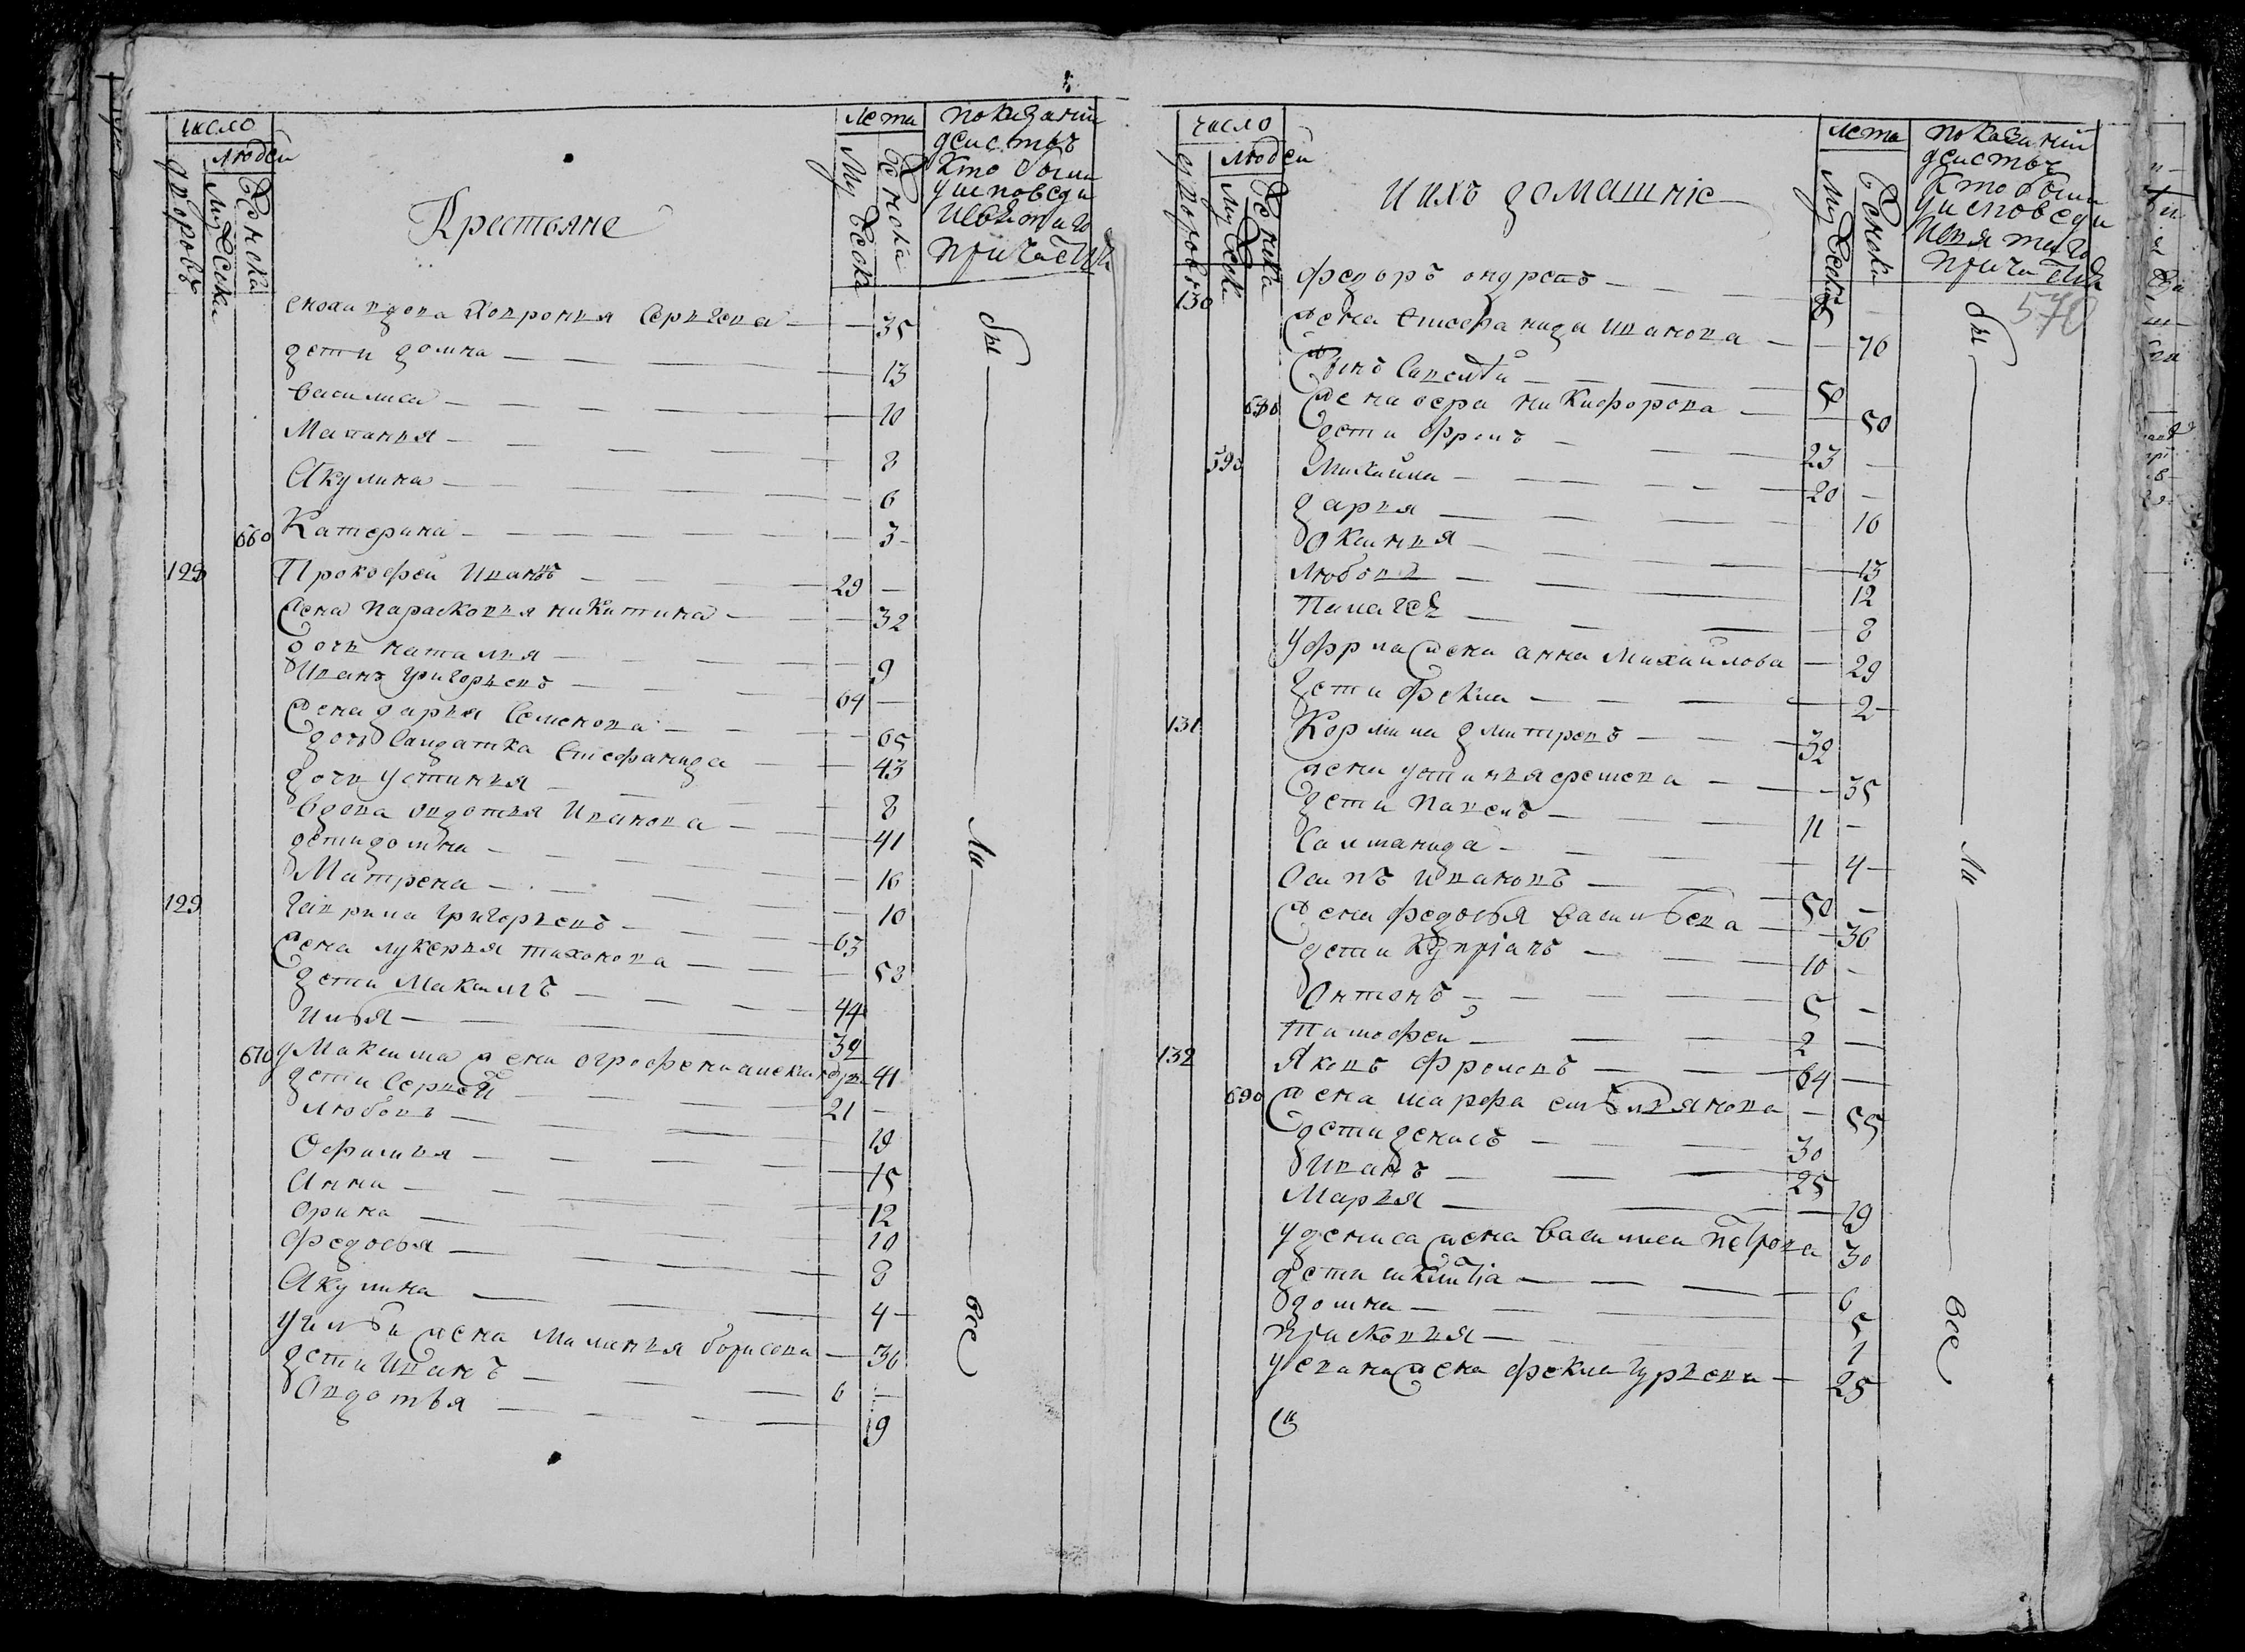 число
людей
дворовъ
мужеска
женска
Крестьяне
лета
мужеска
женска
показании
действъ
кто были
уисповеди
исвятаго
причастия
сноха вдова Хавронья Сергеева — 35
дети домна — 13
василиса — 10
Маланья — 8
Акулина — 6
660 Катерина — 3
128 Прокофеи Ивановъ — 29
жена парасковья никитина — 32
дочь наталия — 9
Иванъ григорьевъ — 64
жена дарья Семенова — 65
дочь Салдатка Стефанида — 43
дочь устинья — 8
вдова авдотья Иванова — 41
дети домна — 16
Матрена — 10
129 гаврила григорьевъ — 63
жена лукерья тихонова — 58
дети Максимъ — 44
Илья — 39
670 у Максима жена огрофена 41
дети Сергей — 21
любовь — 19
Офимья — 15
Анна — 12
орина — 10
федосья — 8
Акулина — 4
уильи жена Маланья борисова — 36
дети Иванъ — 6
Овдотья — 9
бы
ли
все
число
людей
дворовъ
мужеска
женска
и ихъ домашние
лета
мужеска
женска
показании
действъ
кто были
уисповеди
исвятаго
причастия
570
130 федоръ ондревъ —
жена Стефанида иванова — 76
сынъ Савелей — 50
680 жена вера никифорова — 50
дети фролъ — 23
590 Михаила — 20
дарья — 16
Оксинья — 13
любовья — 12
Палагея — 8
уфрола жена анна михайлова — 29
дети фекла — 2
131 Кормила дмитревъ — 32
жена устинья — 35
дети павелъ — 11
Саламанида — 4
Осипъ ивановъ — 50
жена федосья васильева — 36
дети куприянъ — 10
Онтонъ — 5
тимофеи — 2
132 Яковъ фроловъ — 64
690 жена марфа емельянова — 55
дети денисъ — 30
Иванъ — 25
Марья — 19
удениса жена василиса петрова 30
дети — 6
домна — 5
прасковья — 1
уивана жена фекла гурьева — 25
бы
ли
все